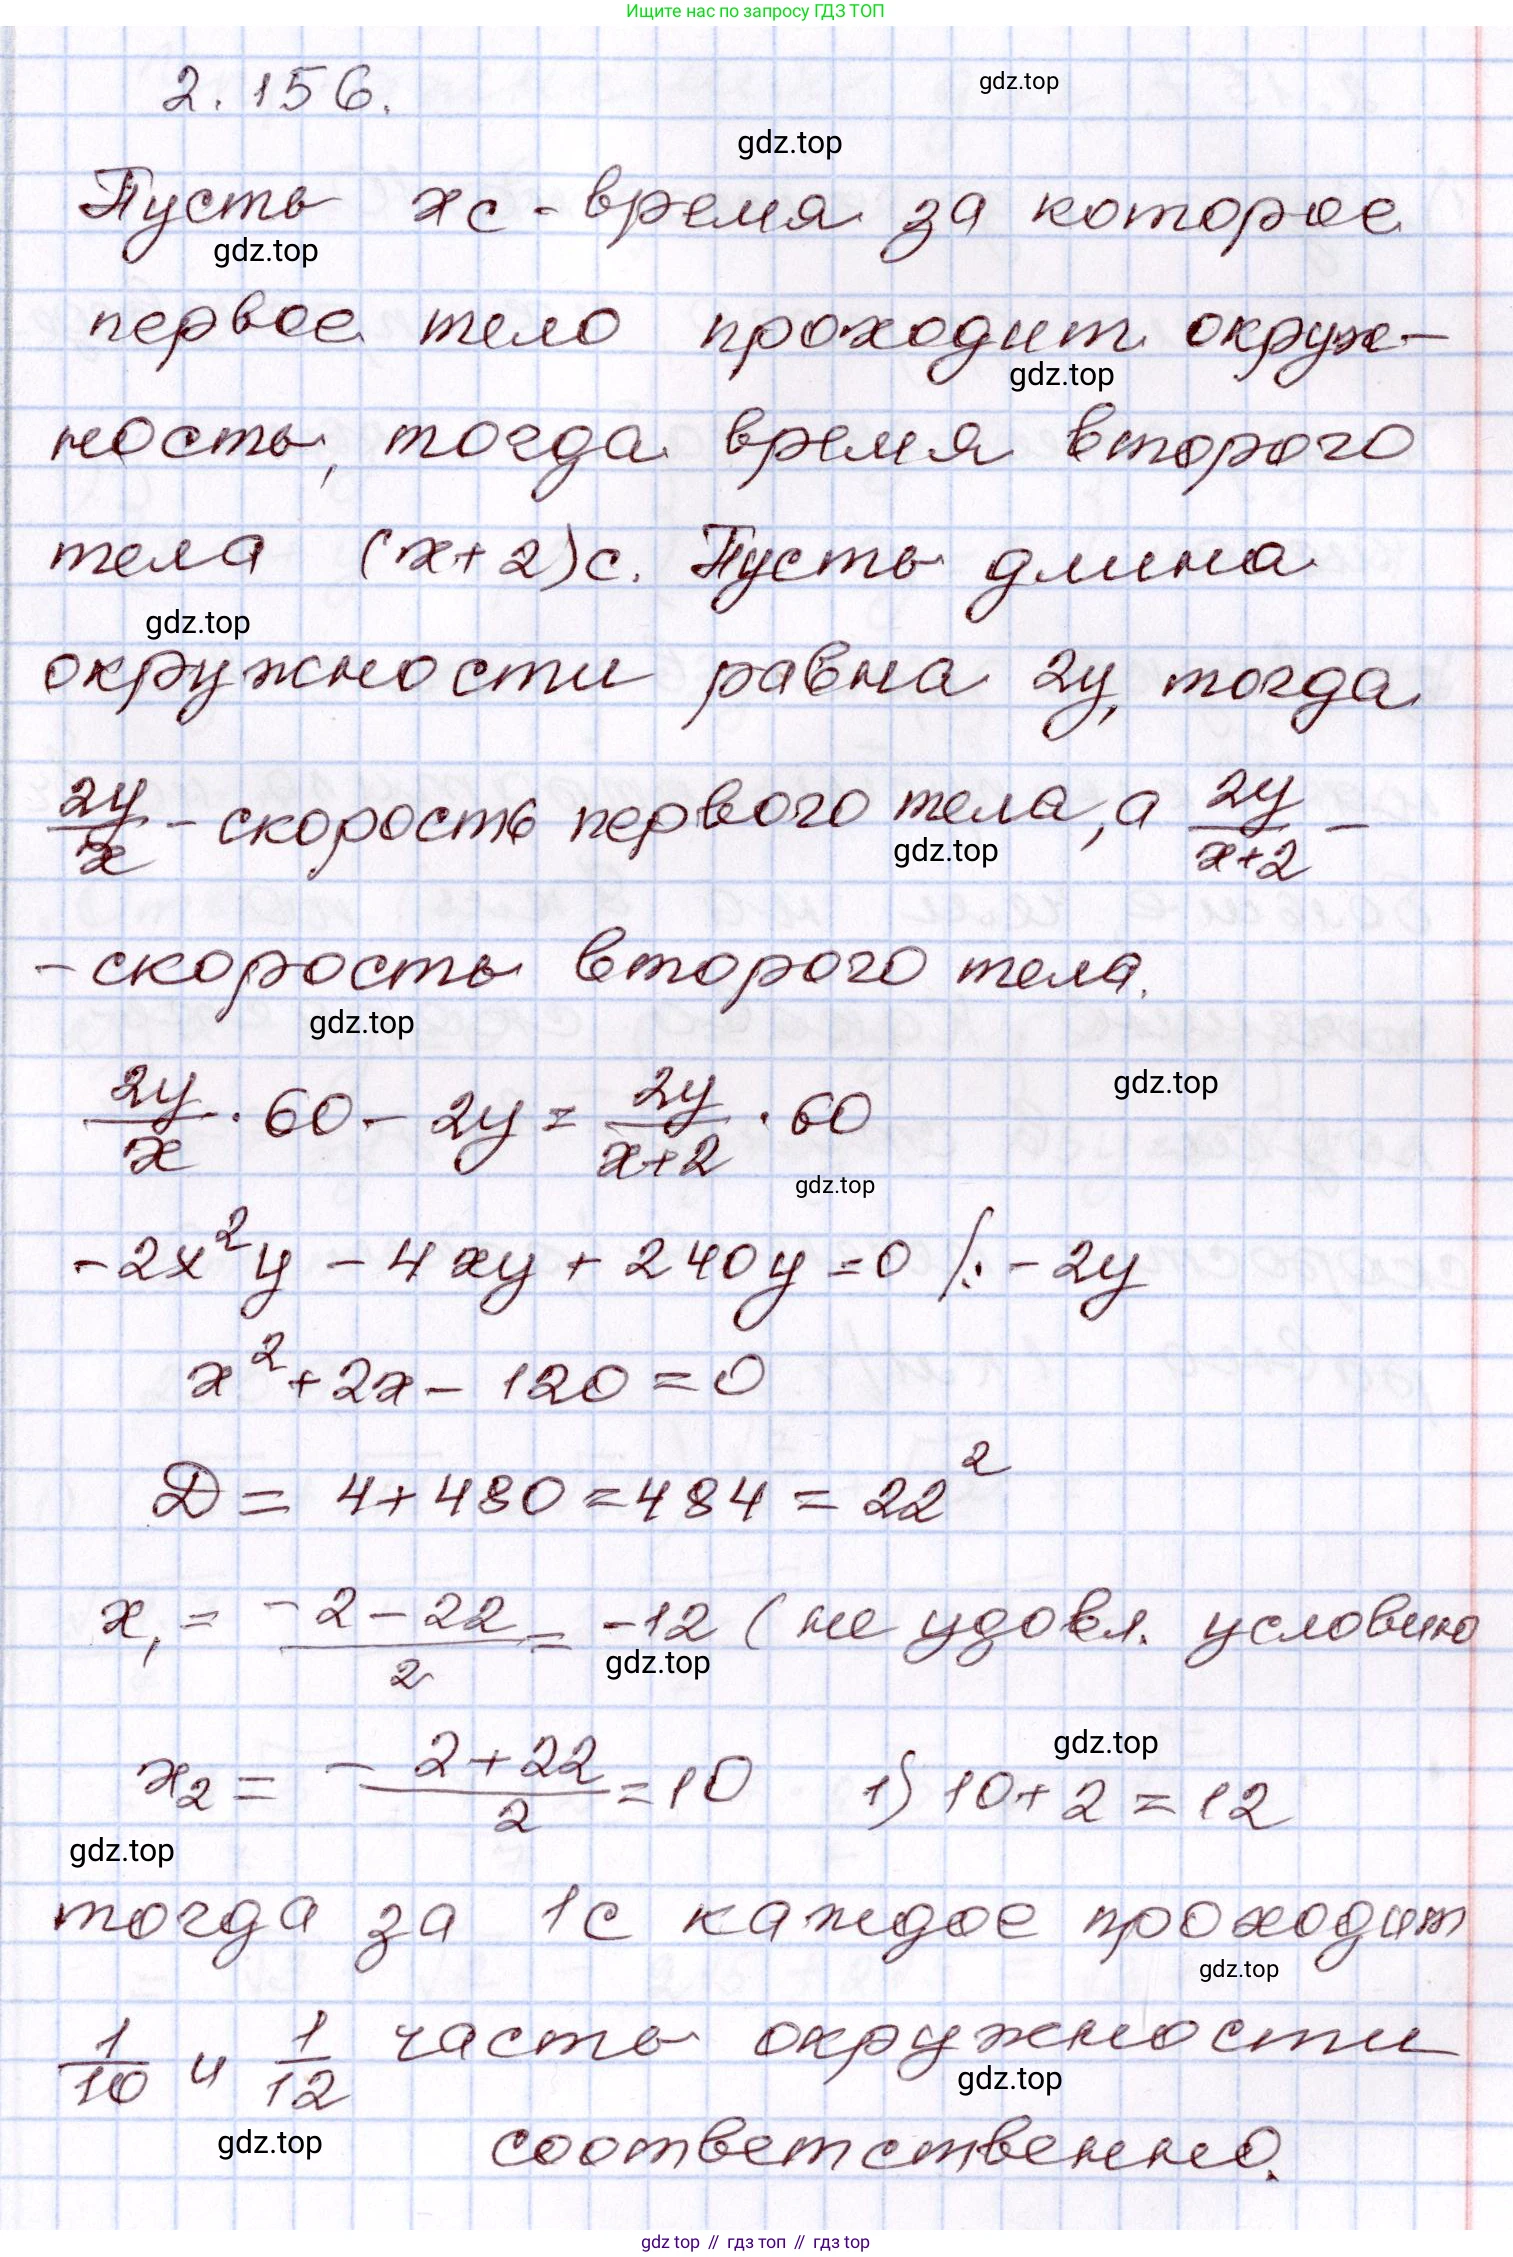 Ищите нас по запросу ГДЗ ТОП
2.156.
gdz.top
gdz.top
Пусть x с - время за которое
gdz.top
первое тело проходит окруж-
gdz.top
ность, тогда время второго
тела (x+2)с. Пусть длина
gdz.top
окружности равна 2y, тогда
2y/x - скорость первого тела, а 2y/(x+2) -
gdz.top
- скорость второго тела.
gdz.top
gdz.top
2y/x · 60 - 2y = 2y/(x+2) · 60
gdz.top
-2x²y - 4xy + 240y = 0 /: -2y
x² + 2x - 120 = 0
D = 4+480 = 484 = 22²
x₁ = (-2-22)/2 = -12 (не удовл. условию
gdz.top
gdz.top
x₂ = -(2+22)/2 = 10 1) 10+2 = 12
gdz.top
тогда за 1с каждое проходит
gdz.top
1/10 и 1/12 часть окружности
gdz.top
gdz.top
соответственно.
gdz top // гдз топ // гдз top